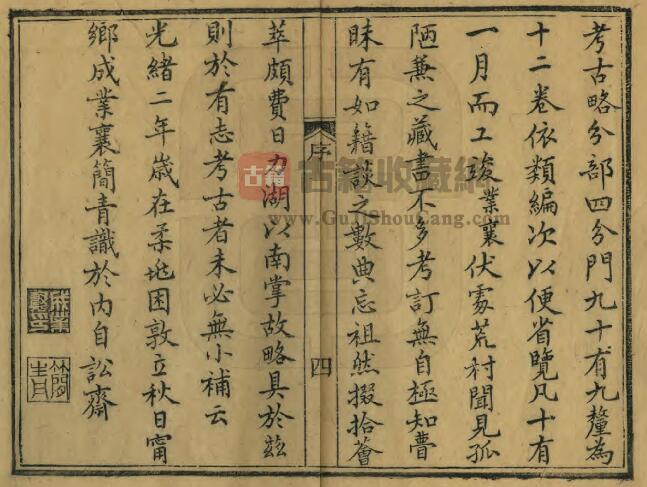 考古略分部四分門九十有九釐為
十二卷依類編次以便省覽凡十有
一月而工竣業襄伏處荒村聞見孤
陋蕪之藏書不多考訂無自極知瞢
眛有如籍談之數典忘祖然掇拾薈
序
四
萃頗費日力湖以南掌故略具於茲
則於有志考古者未必無小補云
光緒二年歲在柔兆困敦立秋日甯
鄉成業襄簡青識於內自訟齋
古籍
古籍收藏網
www.GuJiShouCang.com